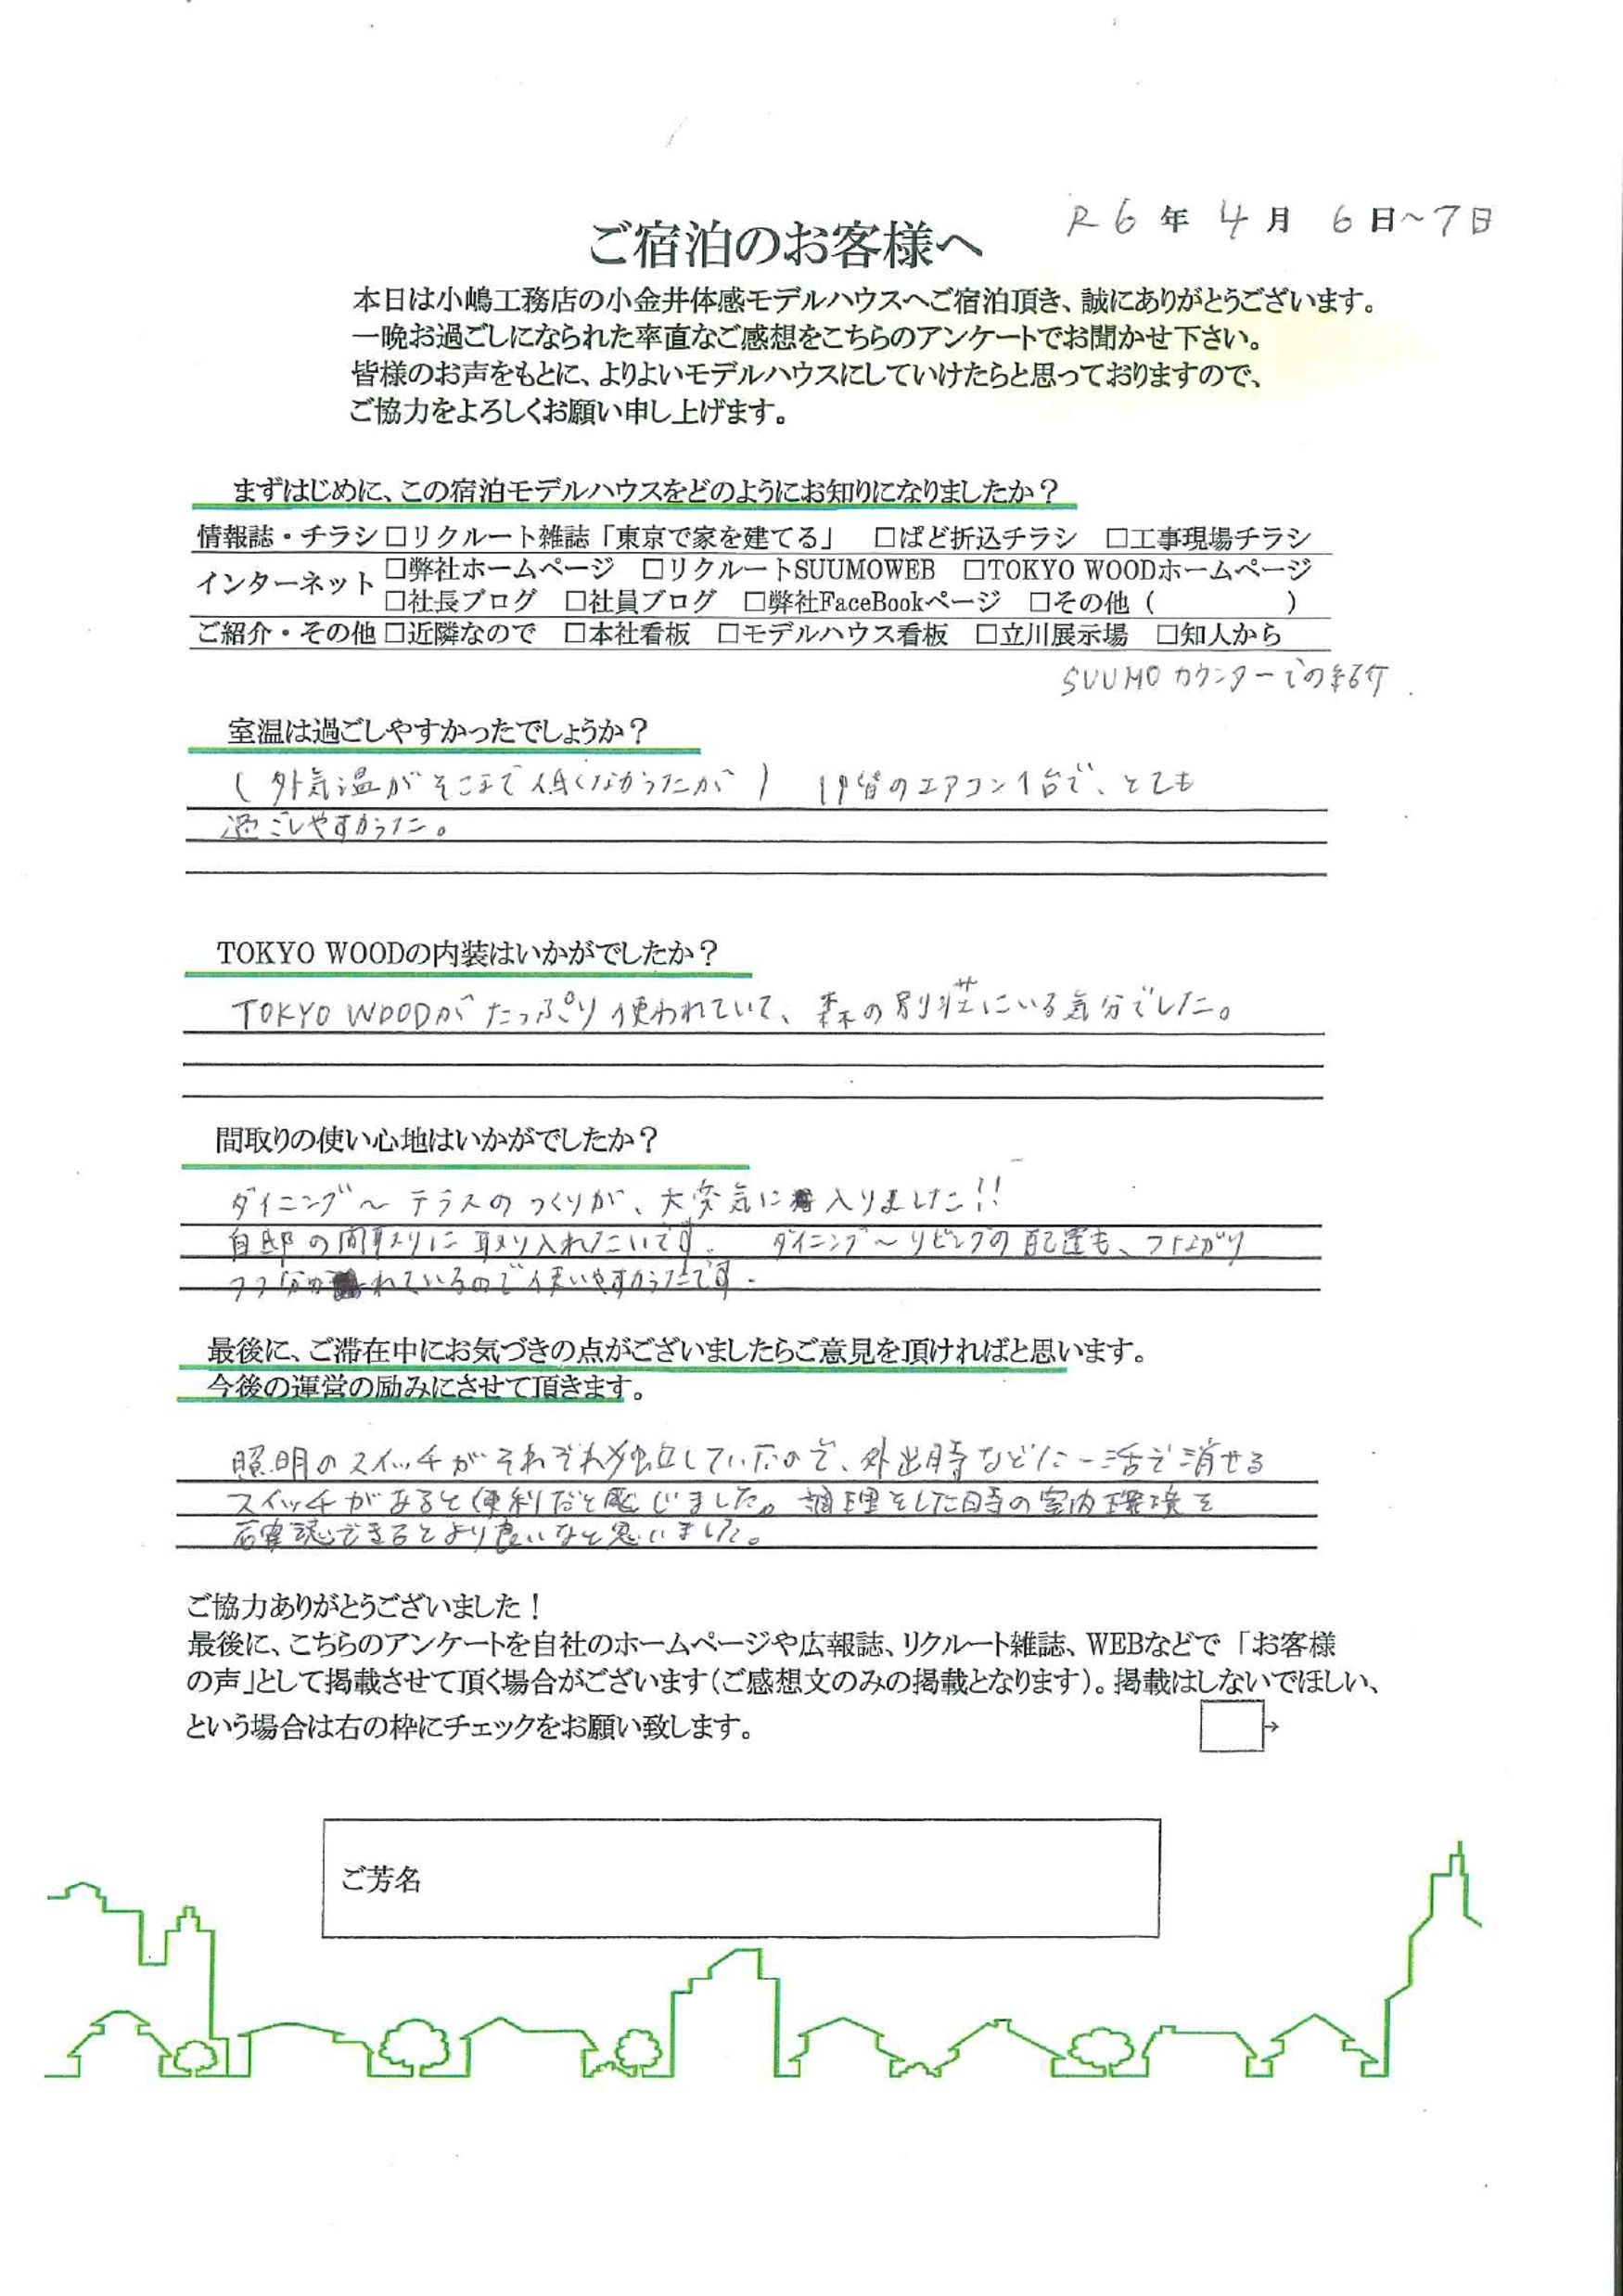 R6年 4月 6日～7日
ご宿泊のお客様へ
本日は小嶋工務店の小金井体感モデルハウスへご宿泊頂き、誠にありがとうございます。
一晩お過ごしになられた率直なご感想をこちらのアンケートでお聞かせ下さい。
皆様のお声をもとに、よりよいモデルハウスにしていけたらと思っておりますので、
ご協力をよろしくお願い申し上げます。
まずはじめに、この宿泊モデルハウスをどのようにお知りになりましたか？
情報誌・チラシ □リクルート雑誌「東京で家を建てる」 □ぱど折込チラシ □工事現場チラシ
インターネット □弊社ホームページ □リクルートSUUMOWEB □TOKYO WOODホームページ
□社長ブログ □社員ブログ □弊社FaceBookページ □その他（ ）
ご紹介・その他 □近隣なので □本社看板 □モデルハウス看板 □立川展示場 □知人から
SUUMOカウンターでの紹介.
室温は過ごしやすかったでしょうか？
（外気温がそこまで低くなかったが） 1階のエアコン1台で、とても
過ごしやすかった。
TOKYO WOODの内装はいかがでしたか？
TOKYO WOODがたっぷり使われていて、森の別荘にいる気分でした。
間取りの使い心地はいかがでしたか？
ダイニング～テラスのつくりが、大変気に入りました!!
自邸の間取りに取り入れたいです。 ダイニング～リビングの配置も、つながり
つつ分かれているので使いやすかったです.
最後に、ご滞在中にお気づきの点がございましたらご意見を頂ければと思います。
今後の運営の励みにさせて頂きます。
照明のスイッチがそれぞれ独立していたので、外出時などに一括で消せる
スイッチがあると便利だと感じました。調理をした時の室内環境を
確認できるとより良いなと思いました。
ご協力ありがとうございました！
最後に、こちらのアンケートを自社のホームページや広報誌、リクルート雑誌、WEBなどで「お客様
の声」として掲載させて頂く場合がございます（ご感想文のみの掲載となります）。掲載はしないでほしい、
という場合は右の枠にチェックをお願い致します。
ご芳名